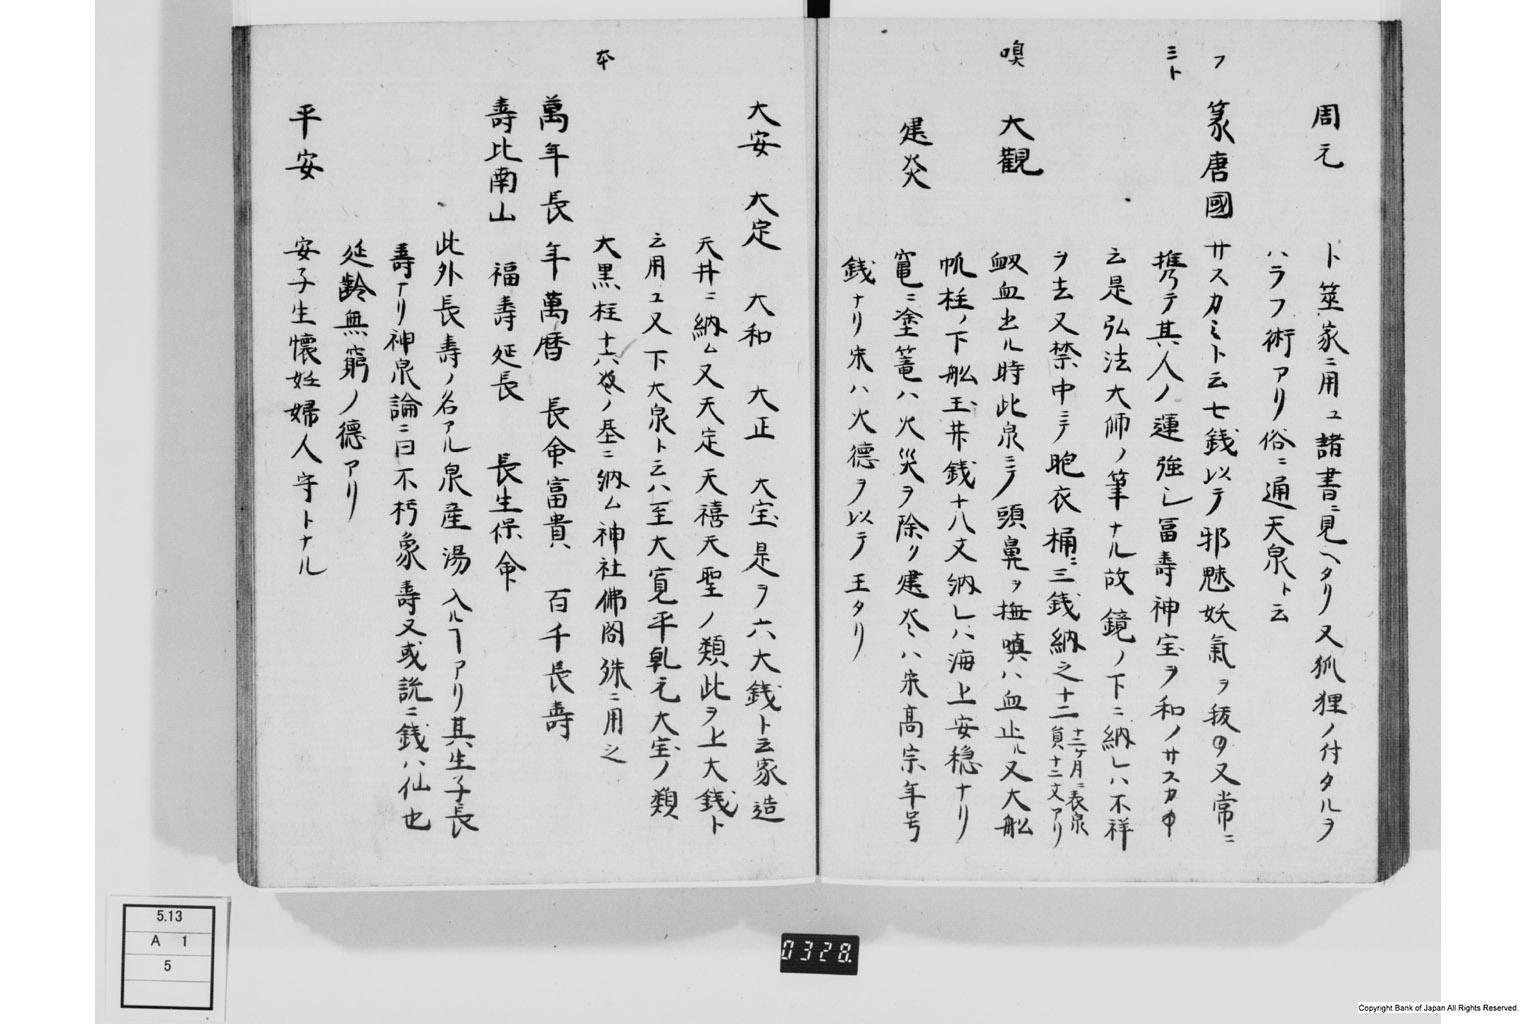 周元 卜筮家ニ用ユ諸書ニ見ヘタリ又狐狸ノ付タルヲ
ハラフ術アリ俗ニ通天泉ト云
フ
篆唐國 サスカミト云七銭以テ邪魅妖氣ヲ祓 又常ニ
ミト
携テ其人ノ運強シ冨壽神宝ヲ和ノサスカ
云是弘法大師ノ筆ナル故鏡ノ下ニ納レハ不祥
ヲ去又禁中ニテ胞衣桶ニ三銭納之十二 十二ケ月ニ表泉
員十二文アリ
嗅
大觀 衂血出ル時此泉ニテ頭鼻ヲ撫嗅ハ血止ル又大舩
帆柱ノ下舩玉井銭十八文納レハ海上安穏ナリ
建炎 竃ニ塗篭ハ火災ヲ除リ建炎ハ宋高宗年号
銭ナリ宋ハ火德ヲ以テ王タリ
大安 大定 大和 大正 大宝是ヲ六大銭ト云家造
天井ニ納ム又天定天禧天聖ノ類此ヲ上大銭ト
云用ユ又下大泉ト云ハ至大寛平乹元大宝ノ類
本
大黒柱十六 ノ基ニ納ム神社佛閣殊ニ用之
萬年長年 萬暦 長命富貴 百千長壽
壽比南山 福壽延長 長生保命
此外長壽ノ名アル泉産湯入ルヿアリ其生子長
壽ナリ神泉論ニ曰不朽象壽又或説ニ銭ハ仙也
延齢無窮ノ德アリ
平安 安子生懐妊婦人守トナル
5.13
A 1
5
0328.
Copyright Bank of Japan All Rights Reserved.